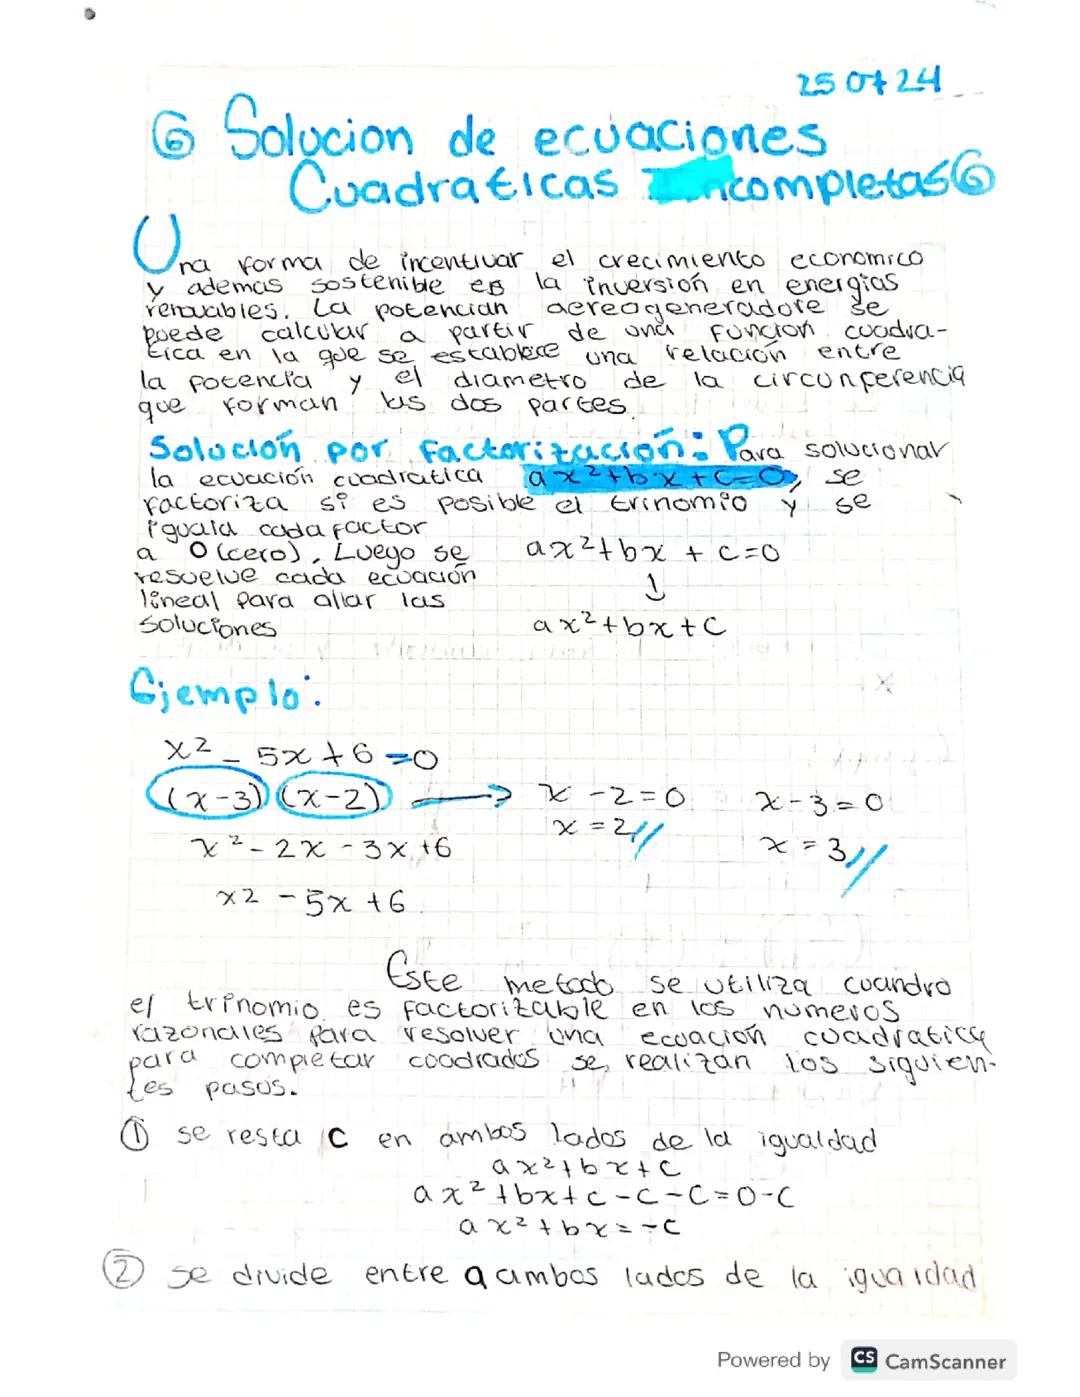 25 07 24
⑥ Solucion de ecuaciones
Cuadraticas Incompletas ⑥
Una forma de incentivar el crecimiento economico
y ademas sostenible es la inversión en energias
renovables. La potencian aereogeneradore se
puede calcular a partir de una funcion cuadra-
tica en la que se establece una relación entre
la potencia y el diametro de la circunferencia
que forman las dos partes.
Solución por factorización: Para solucionar
la ecuación cuadratica ax²+bx+c=0, se
factoriza si es posible el trinomio y se
iguala cada factor
a 0 (cero). Luego se
resuelve cada ecuación
lineal para allar las
soluciones
ax²+bx+c=0
↓
ax²+bx+c
Ejemplo:
x2 - 5x+6=0
(x-3)(x-2) → x-2=0 x-3=0
x=2// x=3//
x²-2x-3x+6
x2 -5x+6
Este metodo se utiliza cuandro
el trinomio es factorizable en los numeros
razonales para resolver una ecuación cuadratica
para completar cuadrados se realizan los siguien-
tes pasos.
① se resta C en ambos lados de la igualdad
ax²+bx+c
ax²+bx+c-c-c=0-c
ax²+bx=-c
② se divide entre a ambos lados de la igualdad
Powered by CS CamScanner